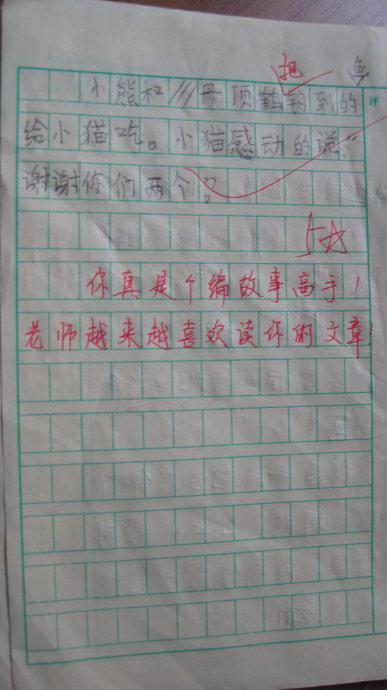 把 鱼
小熊和丹顶鹤钓到的
给小猫吃。小猫感动的说：“
谢谢你们两个。
5☆
你真是个编故事高手！
老师越来越喜欢读你的文章！